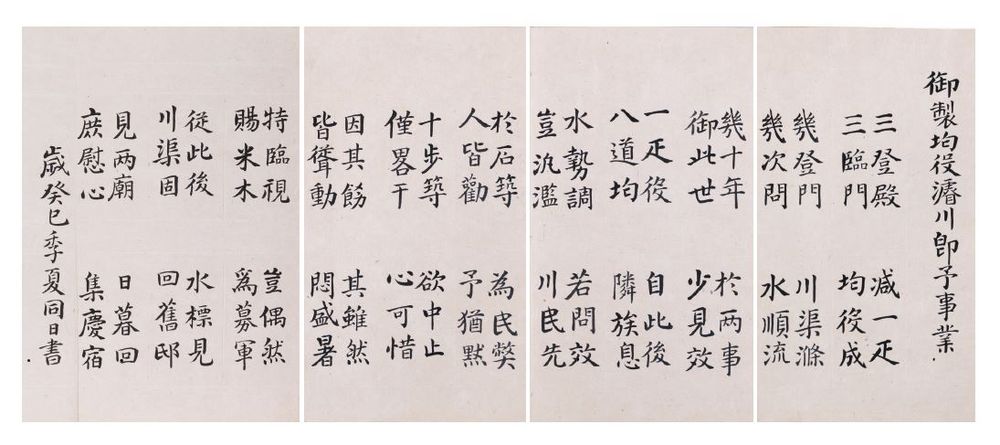 御製均役濬川即予事業
三登殿
三臨門
减一疋
均役成
幾登門
幾次問
川渠滌
水順流
幾十年
御此世
於两事
少見效
一疋役
八道均
自此後
隣族息
水勢調
豈氾濫
若問效
川民先
於石築
人皆勸
為民獘
予猶默
十步築
僅畧干
欲中止
心可惜
因其餝
皆聳動
其雖然
悶盛暑
特臨視
賜米木
豈偶然
爲募軍
從此後
川渠固
水標見
回舊邸
見两廟
庶慰心
日暮回
集慶宿
歲癸巳季夏同日書